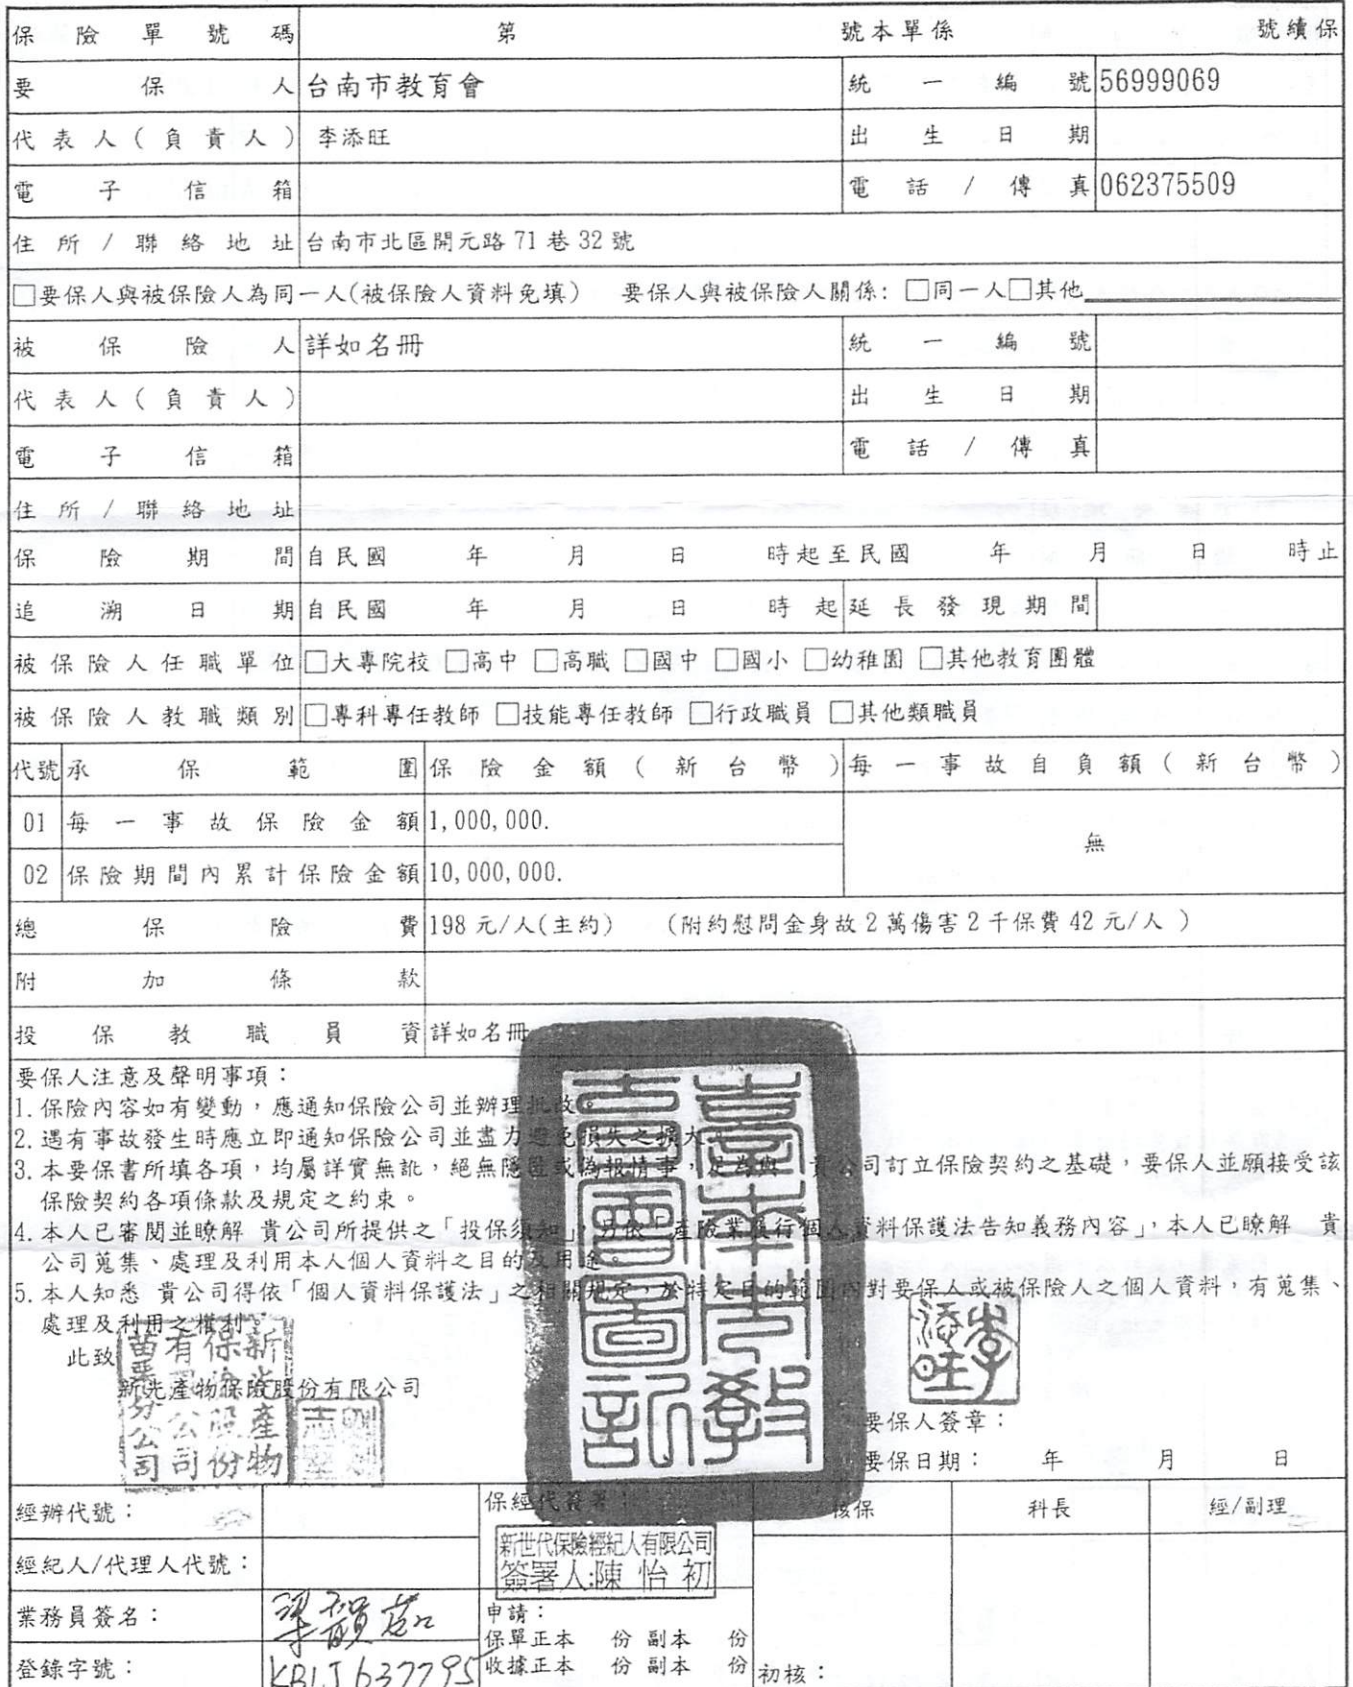 保險單號碼 第 號本單係 號續保
要保人 台南市教育會 統一編號 56999069
代表人(負責人) 李添旺 出生日期
電子信箱 電話/傳真 062375509
住所/聯絡地址 台南市北區開元路 71 巷 32 號
□要保人與被保險人為同一人(被保險人資料免填) 要保人與被保險人關係: □同一人□其他
被保險人 詳如名冊 統一編號
代表人(負責人) 出生日期
電子信箱 電話/傳真
住所/聯絡地址
保險期間 自民國 年 月 日 時起至民國 年 月 日 時止
追溯日期 自民國 年 月 日 時起 延長發現期間
被保險人任職單位 □大專院校 □高中 □高職 □國中 □國小 □幼稚園 □其他教育團體
被保險人教職類別 □專科專任教師 □技能專任教師 □行政職員 □其他類職員
代號 承保範圍 保險金額(新台幣) 每一事故自負額(新台幣)
01 每一事故保險金額 1,000,000. 無
02 保險期間內累計保險金額 10,000,000.
總保險費 198 元/人(主約) (附約慰問金身故 2 萬傷害 2 千保費 42 元/人 )
附加條款
投保教職員資 詳如名冊
要保人注意及聲明事項：
1.保險內容如有變動，應通知保險公司並辦理批改。
2.遇有事故發生時應立即通知保險公司並盡力避免損失之擴大
3.本要保書所填各項，均屬詳實無訛，絕無隱匿或偽報情事，足為與 貴公司訂立保險契約之基礎，要保人並願接受該
保險契約各項條款及規定之約束。
4.本人已審閱並瞭解 貴公司所提供之「投保須知」，另依「產險業履行個人資料保護法告知義務內容」，本人已瞭解 貴
公司蒐集、處理及利用本人個人資料之目的及用途。
5.本人知悉 貴公司得依「個人資料保護法」之相關規定，於特定目的範圍內對要保人或被保險人之個人資料，有蒐集、
處理及利用之權利。
此致
新光產物保險股份有限公司
新光產物
保險股份
有限公司
苗栗分公司
臺南市教
育會圖記
李添旺
要保人簽章：
要保日期： 年 月 日
經辦代號： 保經代簽署： 核保 科長 經/副理
新世代保險經紀人有限公司
簽署人:陳怡初
經紀人/代理人代號：
業務員簽名： 申請：
保單正本 份 副本 份
登錄字號： KBLJ637795 收據正本 份 副本 份 初核：